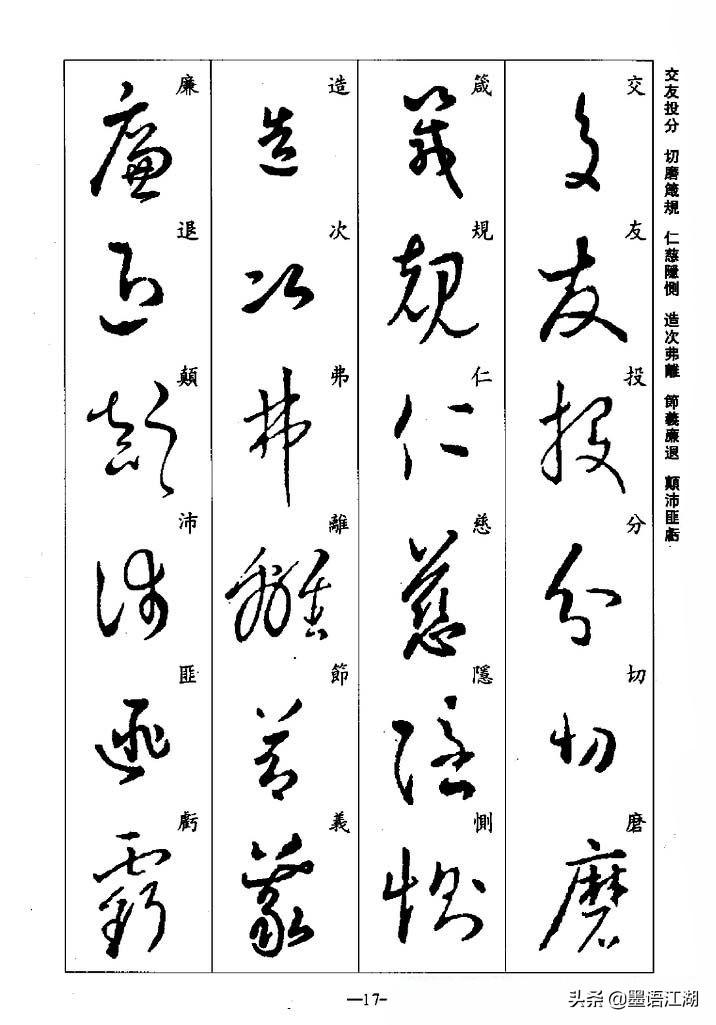 交友投分 切磨箴規 仁慈隱惻 造次弗離 節義廉退 顛沛匪虧
交友投分切磨
箴規仁慈隱惻
造次弗離節義
廉退顛沛匪虧
—17-
头条 @墨语江湖